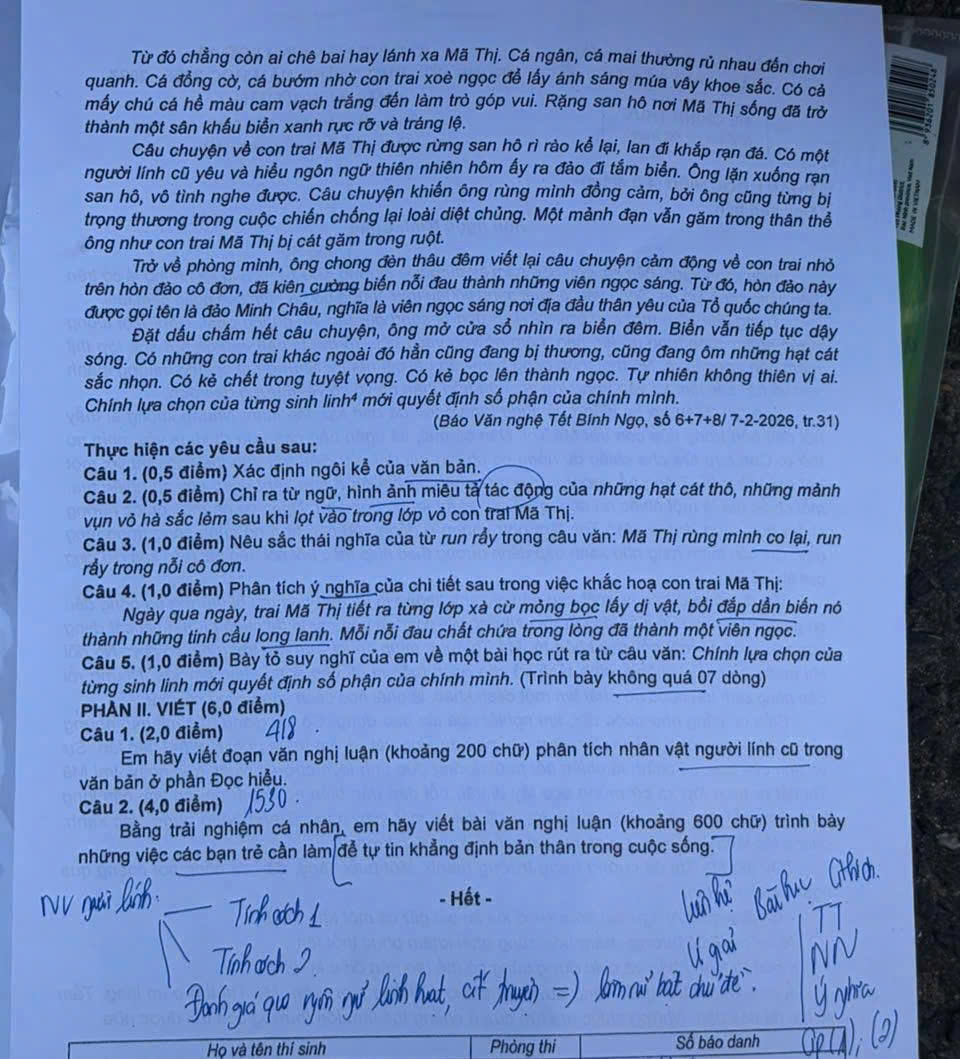 Từ đó chẳng còn ai chê bai hay lánh xa Mã Thị. Cá ngân, cá mai thường rủ nhau đến chơi
quanh. Cá đồng cờ, cá bướm nhờ con trai xoè ngọc để lấy ánh sáng múa vây khoe sắc. Có cả
mấy chú cá hề màu cam vạch trắng đến làm trò góp vui. Rặng san hô nơi Mã Thị sống đã trở
thành một sân khấu biển xanh rực rỡ và tráng lệ.
Câu chuyện về con trai Mã Thị được rừng san hô rì rào kể lại, lan đi khắp rạn đá. Có một
người lính cũ yêu và hiểu ngôn ngữ thiên nhiên hôm ấy ra đảo đi tắm biển. Ông lặn xuống rạn
san hô, vô tình nghe được. Câu chuyện khiến ông rùng mình đồng cảm, bởi ông cũng từng bị
trọng thương trong cuộc chiến chống lại loài diệt chủng. Một mảnh đạn vẫn găm trong thân thể
ông như con trai Mã Thị bị cát găm trong ruột.
Trở về phòng mình, ông chong đèn thâu đêm viết lại câu chuyện cảm động về con trai nhỏ
trên hòn đảo cô đơn, đã kiên cường biến nỗi đau thành những viên ngọc sáng. Từ đó, hòn đảo này
được gọi tên là đảo Minh Châu, nghĩa là viên ngọc sáng nơi địa đầu thân yêu của Tổ quốc chúng ta.
Đặt dấu chấm hết câu chuyện, ông mở cửa sổ nhìn ra biển đêm. Biển vẫn tiếp tục dậy
sóng. Có những con trai khác ngoài đó hẳn cũng đang bị thương, cũng đang ôm những hạt cát
sắc nhọn. Có kẻ chết trong tuyệt vọng. Có kẻ bọc lên thành ngọc. Tự nhiên không thiên vị ai.
Chính lựa chọn của từng sinh linh⁴ mới quyết định số phận của chính mình.
(Báo Văn nghệ Tết Bính Ngọ, số 6+7+8/ 7-2-2026, tr.31)
Thực hiện các yêu cầu sau:
Câu 1. (0,5 điểm) Xác định ngôi kể của văn bản.
Câu 2. (0,5 điểm) Chỉ ra từ ngữ, hình ảnh miêu tả tác động của những hạt cát thô, những mảnh
vụn vỏ hà sắc lẻm sau khi lọt vào trong lớp vỏ con trai Mã Thị.
Câu 3. (1,0 điểm) Nêu sắc thái nghĩa của từ run rẩy trong câu văn: Mã Thị rùng mình co lại, run
rẩy trong nỗi cô đơn.
Câu 4. (1,0 điểm) Phân tích ý nghĩa của chi tiết sau trong việc khắc hoạ con trai Mã Thị:
Ngày qua ngày, trai Mã Thị tiết ra từng lớp xà cừ mỏng bọc lấy dị vật, bồi đắp dần biến nó
thành những tinh cầu long lanh. Mỗi nỗi đau chất chứa trong lòng đã thành một viên ngọc.
Câu 5. (1,0 điểm) Bày tỏ suy nghĩ của em về một bài học rút ra từ câu văn: Chính lựa chọn của
từng sinh linh mới quyết định số phận của chính mình. (Trình bày không quá 07 dòng)
PHẦN II. VIẾT (6,0 điểm)
Câu 1. (2,0 điểm) 418
Em hãy viết đoạn văn nghị luận (khoảng 200 chữ) phân tích nhân vật người lính cũ trong
văn bản ở phần Đọc hiểu.
Câu 2. (4,0 điểm) 1530
Bằng trải nghiệm cá nhân, em hãy viết bài văn nghị luận (khoảng 600 chữ) trình bày
những việc các bạn trẻ cần làm để tự tin khẳng định bản thân trong cuộc sống.
- Hết -
NV người lính:
Tính cách 1
Tính cách 2
Đánh giá qua ngôn ngữ linh hoạt, cốt truyện =) làm nổi bật chủ đề.
Liên hệ Bài học
TT
NN
Ý nghĩa
(2)
Họ và tên thí sinh Phòng thi Số báo danh
8 936201 850248
MADE IN VIETNAM